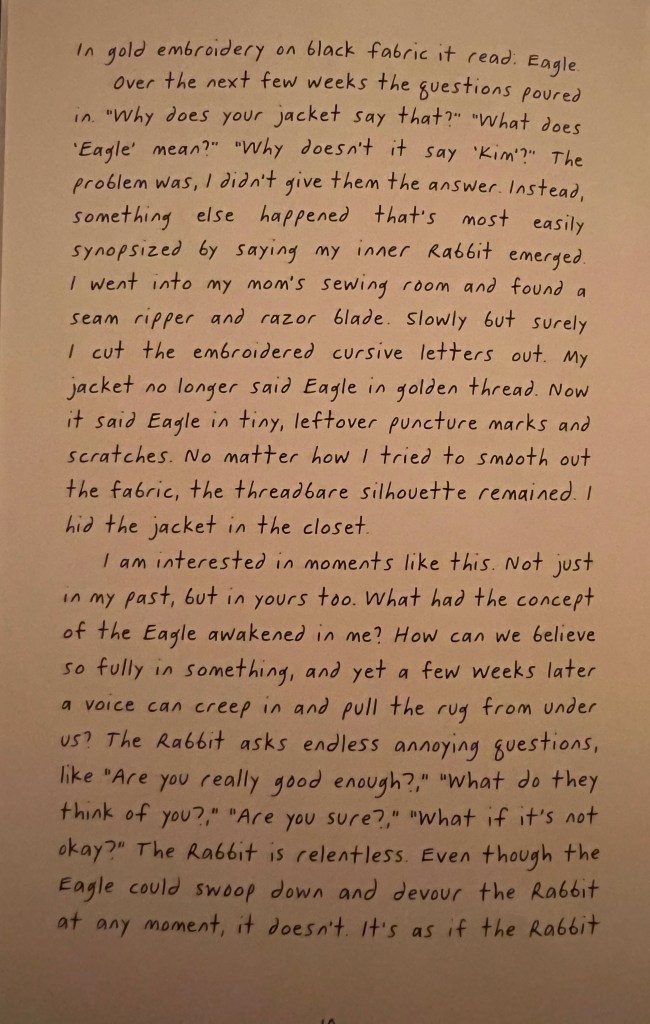 In gold embroidery on black fabric it read: Eagle.
Over the next few weeks the questions poured
in. "Why does your jacket say that?" "What does
'Eagle' mean?" "Why doesn't it say 'Kim'?" The
problem was, I didn't give them the answer. Instead,
something else happened that's most easily
synopsized by saying my inner Rabbit emerged.
I went into my mom's sewing room and found a
seam ripper and razor blade. Slowly but surely
I cut the embroidered cursive letters out. My
jacket no longer said Eagle in golden thread. Now
it said Eagle in tiny, leftover puncture marks and
scratches. No matter how I tried to smooth out
the fabric, the threadbare silhouette remained. I
hid the jacket in the closet.
I am interested in moments like this. Not just
in my past, but in yours too. What had the concept
of the Eagle awakened in me? How can we believe
so fully in something, and yet a few weeks later
a voice can creep in and pull the rug from under
us? The Rabbit asks endless annoying questions,
like "Are you really good enough?," "What do they
think of you?," "Are you sure?," "What if it's not
okay?" The Rabbit is relentless. Even though the
Eagle could swoop down and devour the Rabbit
at any moment, it doesn't. It's as if the Rabbit